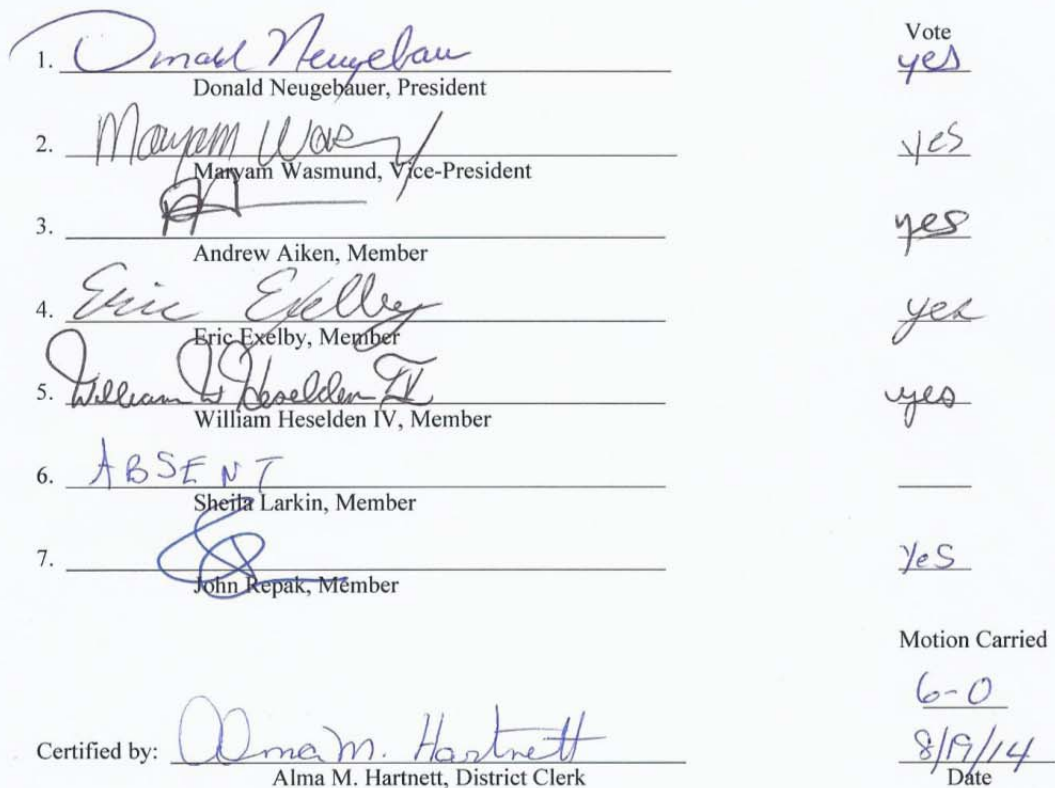 Vote
1. Donald Neugebau yes
Donald Neugebauer, President
2. Maryam yes
Maryam Wasmund, Vice-President
3. yes
Andrew Aiken, Member
4. Eric Exelby yes
Eric Exelby, Member
5. William W Heselden IV yes
William Heselden IV, Member
6. ABSENT
Sheila Larkin, Member
7. yes
John Repak, Member
Motion Carried
6-0
Certified by: Alma M. Hartnett 8/19/14
Alma M. Hartnett, District Clerk Date